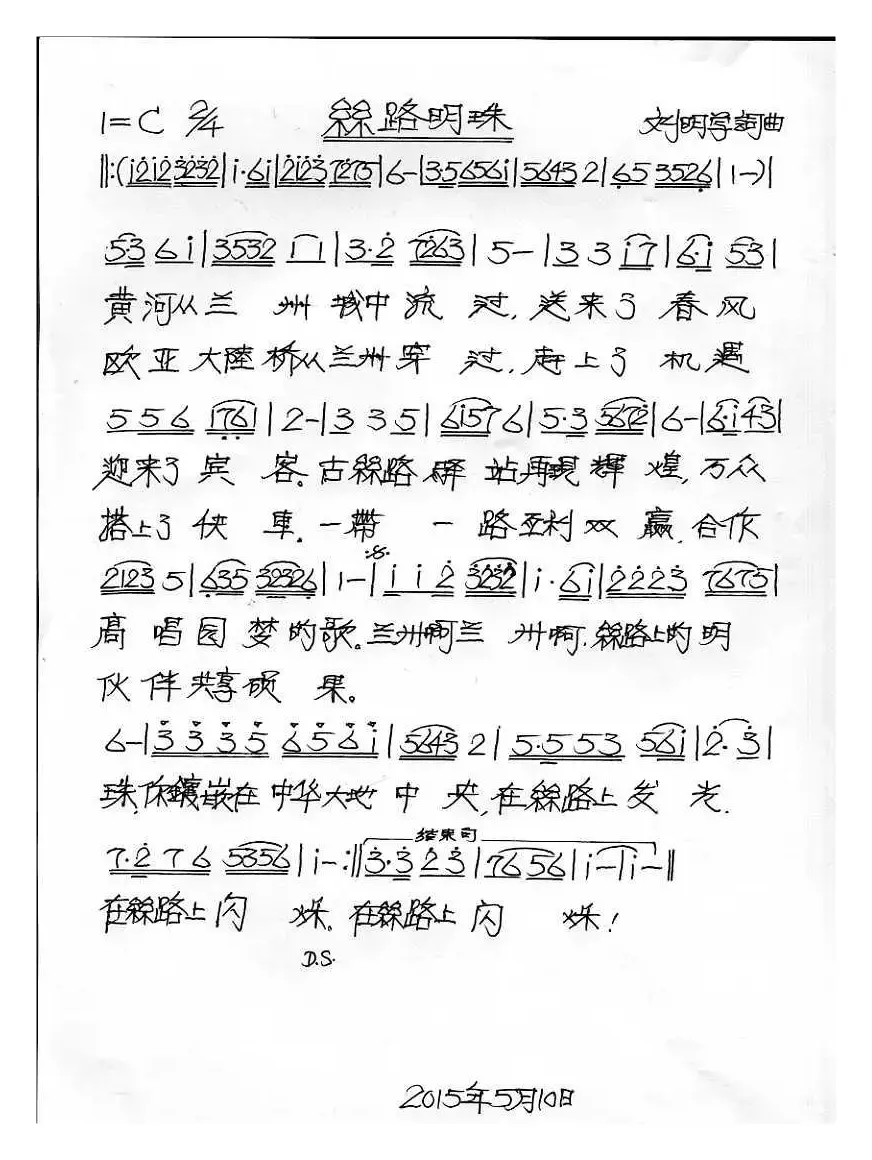 1=C 2/4 絲路明珠 刘明学詞曲
‖:(i̇2̇i̇2̇ 3̇2̇3̇2̇|i̇·6i̇|2̇i̇2̇3̇ 72̇75|6-|3·5 656i̇|5643 2|6̣5 3526̣|1-)|
5·3 6 i̇|3532 1 1|3·2̇ 72̇63|5-|3 3 i̇7|6·i̇ 53|
黄河从兰 州 城中流 过,送来了 春风
欧亚大陸桥从兰州穿 过,赶上了 机遇
5 5 6 1761|2-|3 3 5|6i̇57 6|5·3 5672̇|6-|6·i̇ 43|
迎来了宾 客。古絲路驿 站再現輝 煌,万众
搭上了快 車。一帶 一 路互利双 赢,合作
2123 5|6̣35 32326̣|1-|i̇ i̇ 2̇ 3̇2̇3̇2̇|i̇·6i̇|2̇2̇2̇3̇ 7675|
高唱园梦的歌。兰州啊兰 州啊,絲路上的明
伙伴共享硕 果。
6-|3 3 3 5 6 5 6 i̇|5643 2|5·553 56i̇|2̇·3̇|
珠,你鑲嵌在中华大地中 央,在絲路上发 光.
7·2̇ 7 6 5356|i̇-:‖3̇·3̇ 2̇ 3̇|7656|i̇-|i̇-‖
结束句
在絲路上闪 烁。在絲路上闪 烁!
D.S.
2015年5月10日